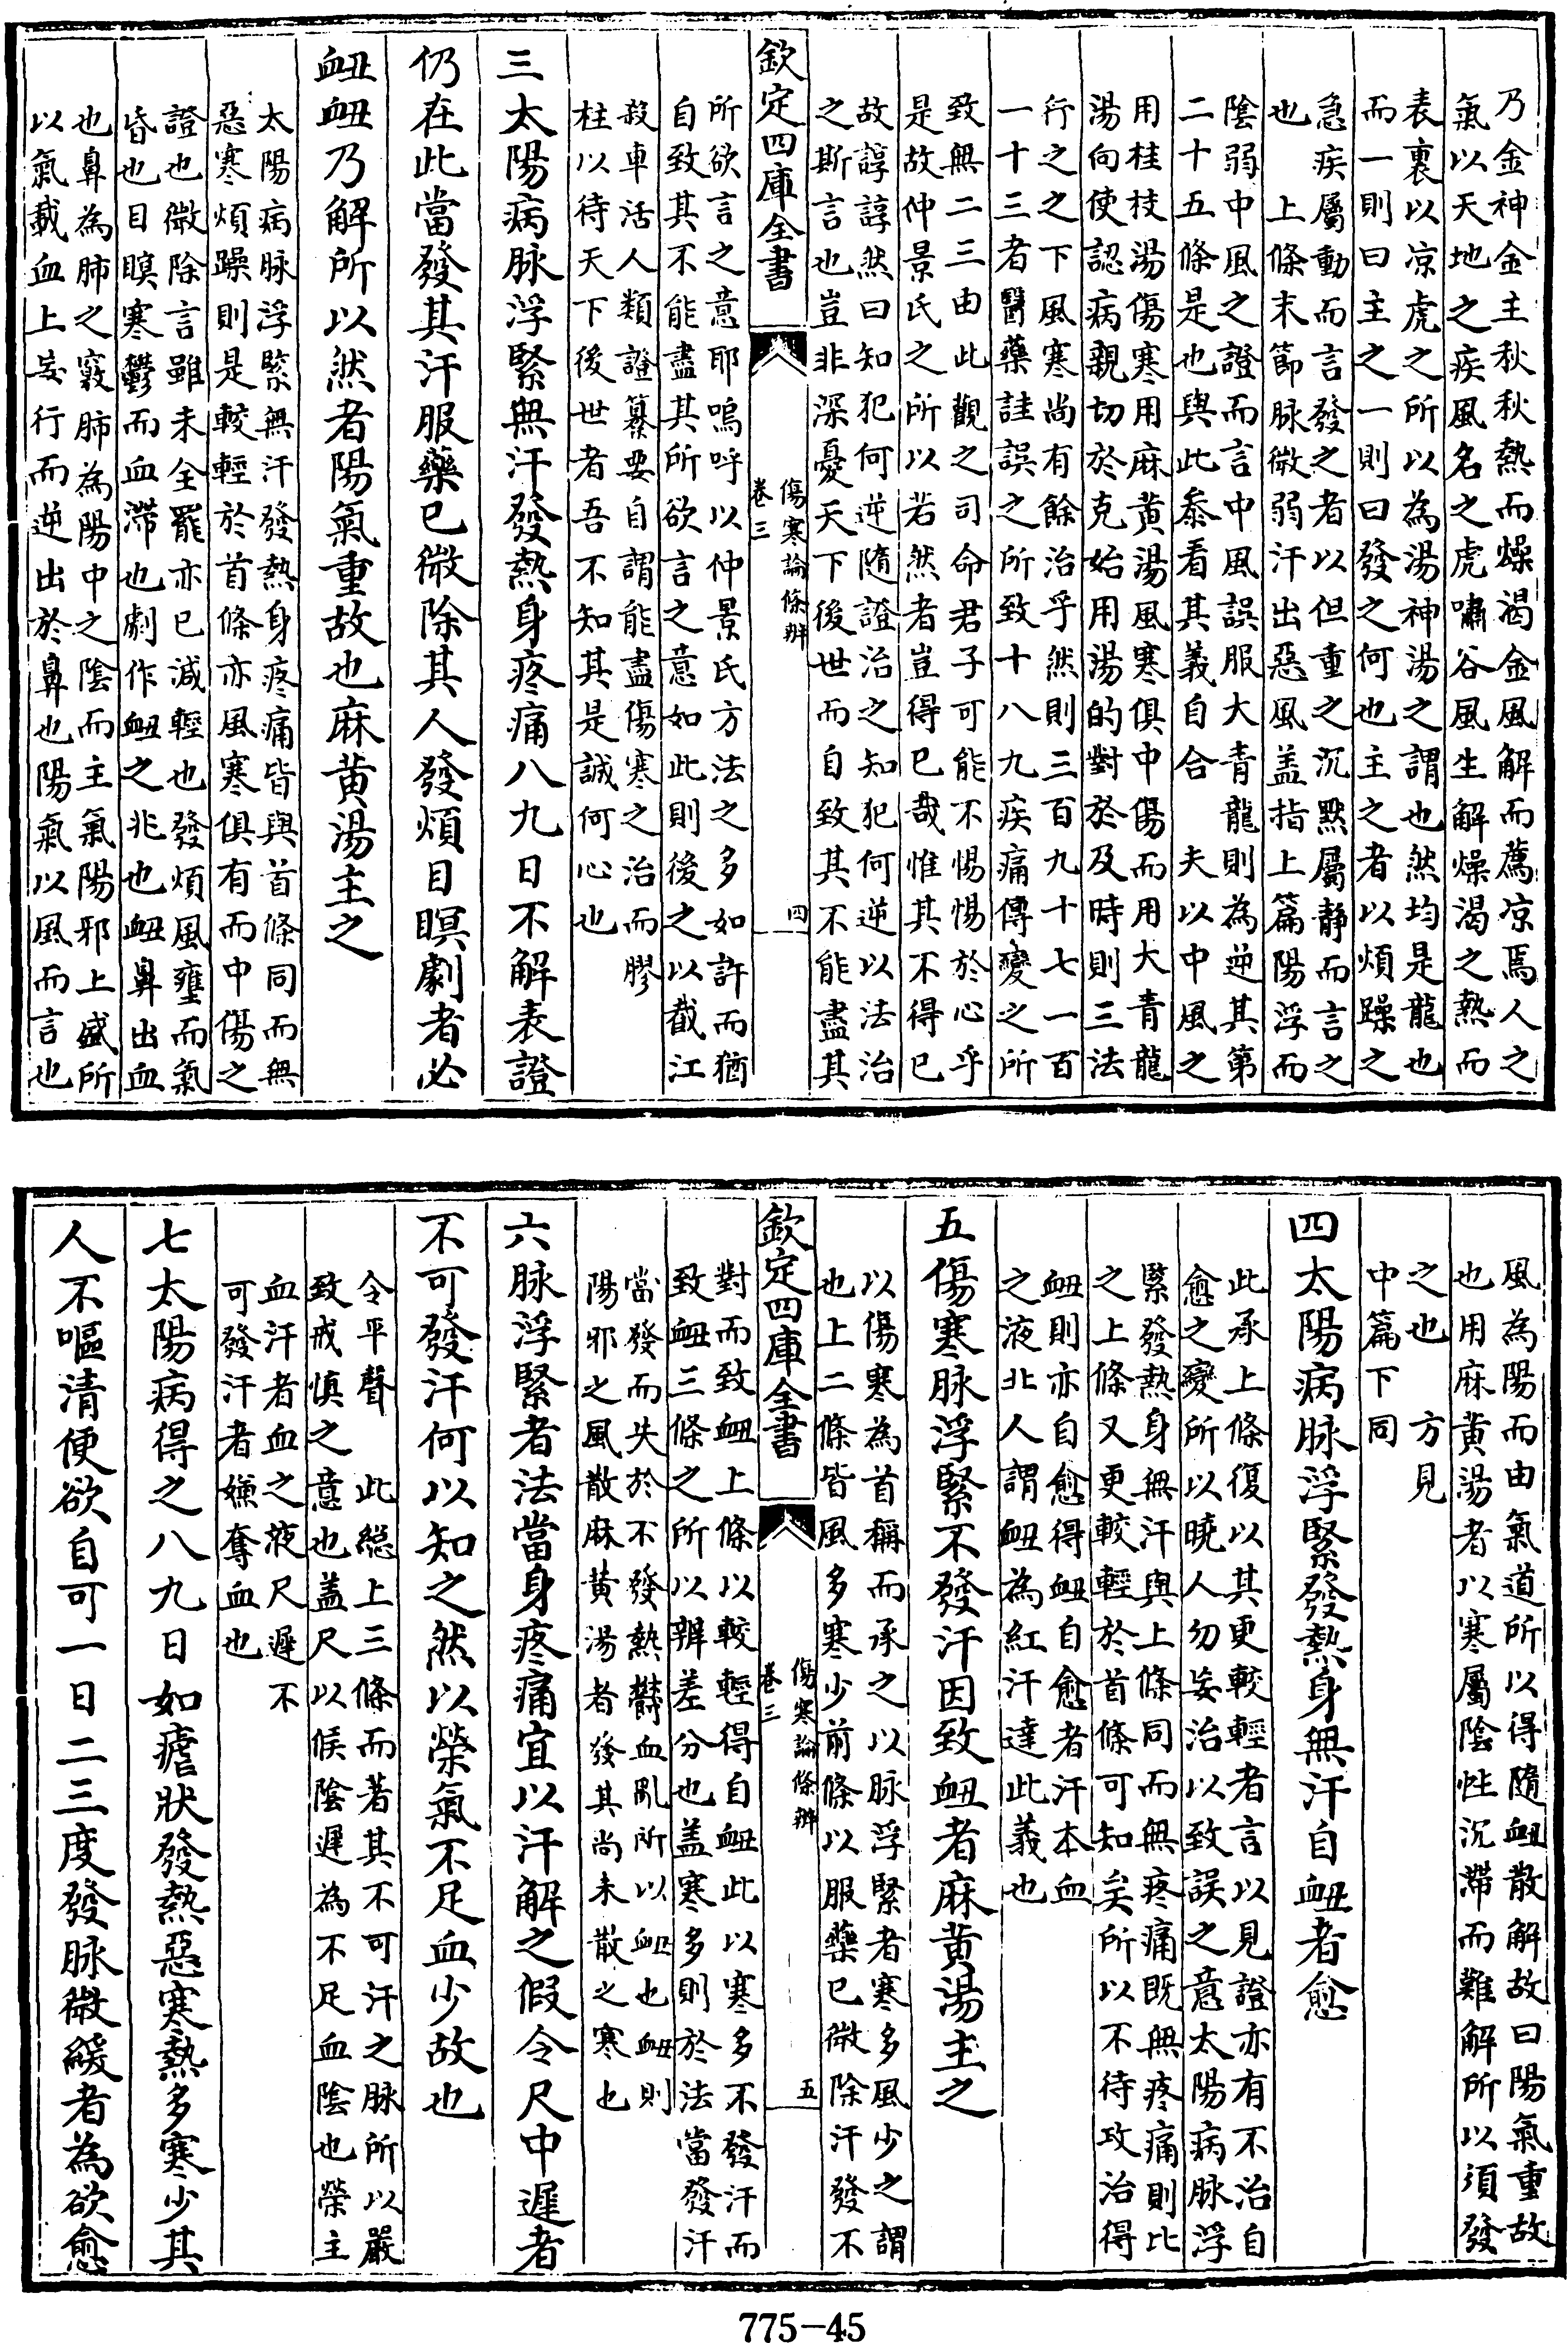 乃金神金主秋秋熱而燥渴金風解而薦涼焉人之
氣以天地之疾風名之虎嘯谷風生解燥渴之熱而
表裏以凉虎之所以為湯神湯之謂也然均是龍也
而一則曰主之一則曰發之何也主之者以煩躁之
急疾屬動而言發之者以但重之沉黙屬静而言之
也　上條末節脉微弱汗出惡風盖指上篇陽浮而
陰弱中風之證而言中風誤服大青龍則為逆其第
二十五條是也與此叅看其義自合　夫以中風之
用桂枝湯傷寒用麻黄湯風寒俱中傷而用大青龍
湯向使認病親切於克始用湯的對於及時則三法
行之之下風寒尚有餘治乎然則三百九十七一百
一十三者醫藥詿誤之所致十八九疾痛傳變之所
致無二三由此觀之司命君子可能不惕惕於心乎
是故仲景氏之所以若然者豈得已哉惟其不得已
故諄諄然曰知犯何逆隨證治之知犯何逆以法治
之斯言也豈非深憂天下後世而自致其不能盡其
欽定四庫全書
傷寒論條辨
卷三
四
所欲言之意耶嗚呼以仲景氏方法之多如許而猶
自致其不能盡其所欲言之意如此則後之以截江
殺車活人類證纂要自謂能盡傷寒之治而膠
柱以待天下後世者吾不知其是誠何心也
三太陽病脉浮緊無汗發熱身疼痛八九日不解表證
仍在此當發其汗服藥已微除其人發煩目瞑劇者必
衄衄乃解所以然者陽氣重故也麻黄湯主之
太陽病脉浮緊無汗發熱身疼痛皆與首條同而無
惡寒煩躁則是較輕於首條亦風寒俱有而中傷之
證也微除言雖未全罷亦已減輕也發煩風壅而氣
昏也目瞑寒鬱而血滯也劇作衄之兆也衄鼻出血
也鼻為肺之竅肺為陽中之陰而主氣陽邪上盛所
以氣載血上妄行而逆出於鼻也陽氣以風而言也
風為陽而由氣道所以得隨衄散解故曰陽氣重故
也用麻黄湯者以寒屬陰性沉滯而難解所以須發
之也　方見
中篇下同
四太陽病脉浮緊發熱身無汗自衄者愈
此承上條復以其更較輕者言以見證亦有不治自
愈之變所以曉人勿妄治以致誤之意太陽病脉浮
緊發熱身無汗與上條同而無疼痛既無疼痛則比
之上條又更較輕於首條可知矣所以不待攻治得
衄則亦自愈得衄自愈者汗本血
之液北人謂衄為紅汗達此義也
五傷寒脉浮緊不發汗因致衄者麻黄湯主之
以傷寒為首稱而承之以脉浮緊者寒多風少之謂
也上二條皆風多寒少前條以服藥已微除汗發不
欽定四庫全書
傷寒論條辨
卷三
五
對而致衄上條以較輕得自衄此以寒多不發汗而
致衄三條之所以辨差分也盖寒多則於法當發汗
當發而失於不發熱鬱血亂所以衄也衄則
陽邪之風散麻黄湯者發其尚未散之寒也
六脉浮緊者法當身疼痛宜以汗解之假令尺中遲者
不可發汗何以知之然以榮氣不足血少故也
令平聲　此總上三條而著其不可汗之脉所以嚴
致戒慎之意也盖尺以候陰遲為不足血陰也榮主
血汗者血之液尺遲不
可發汗者嫌奪血也
七太陽病得之八九日如瘧狀發熱惡寒熱多寒少其
人不嘔清便欲自可一日二三度發脉微緩者為欲愈
775-45